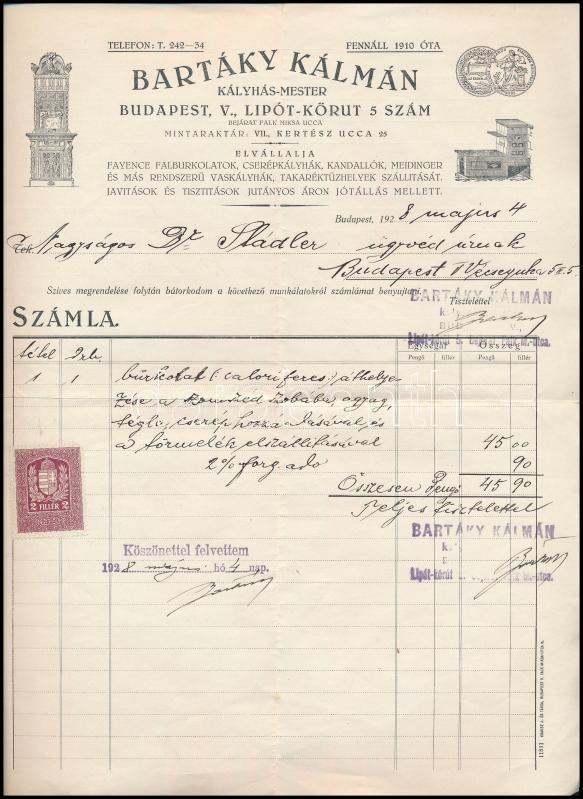 TELEFON: T. 242—34
FENNÁLL 1910 ÓTA
BARTÁKY KÁLMÁN
KÁLYHÁS-MESTER
BUDAPEST, V., LIPÓT-KÖRUT 5 SZÁM
BEJÁRAT FALK MIKSA UCCA
MINTARAKTÁR: VII., KERTÉSZ UCCA 25
ELVÁLLALJA
FAYENCE FALBURKOLATOK, CSERÉPKÁLYHÁK, KANDALLÓK, MEIDINGER
ÉS MÁS RENDSZERÜ VASKÁLYHÁK, TAKARÉKTÜZHELYEK SZÁLLITÁSÁT.
JAVITÁSOK ÉS TISZTITÁSOK JUTÁNYOS ÁRON JÓTÁLLÁS MELLETT.
Budapest, 1928 május 4
Nagyságos Dr Stádler ügyvéd úrnak
Budapest IV
Szives megrendelése folytán bátorkodom a következő munkálatokról számlámat benyujtani.
Tisztelettel
BARTÁKY KÁLMÁN
Lipót-körút 5. bejárat Falk M.-utca.
SZÁMLA.
Egységár Összeg
Pengő fillér Pengő fillér
tétel Drb.
1 1 (caloriferes) áthelye
zése a szobába, agyag,
tégla, cserép hozzáadásával, és
a törmelék elszállításával 45 00
2% forg. adó 90
Összesen Pengő 45 90
Teljes tisztelettel
BARTÁKY KÁLMÁN
Lipót-körút M.-utca.
2 FILLÉR 2
Köszönettel felvettem
1928 május hó 4 nap.